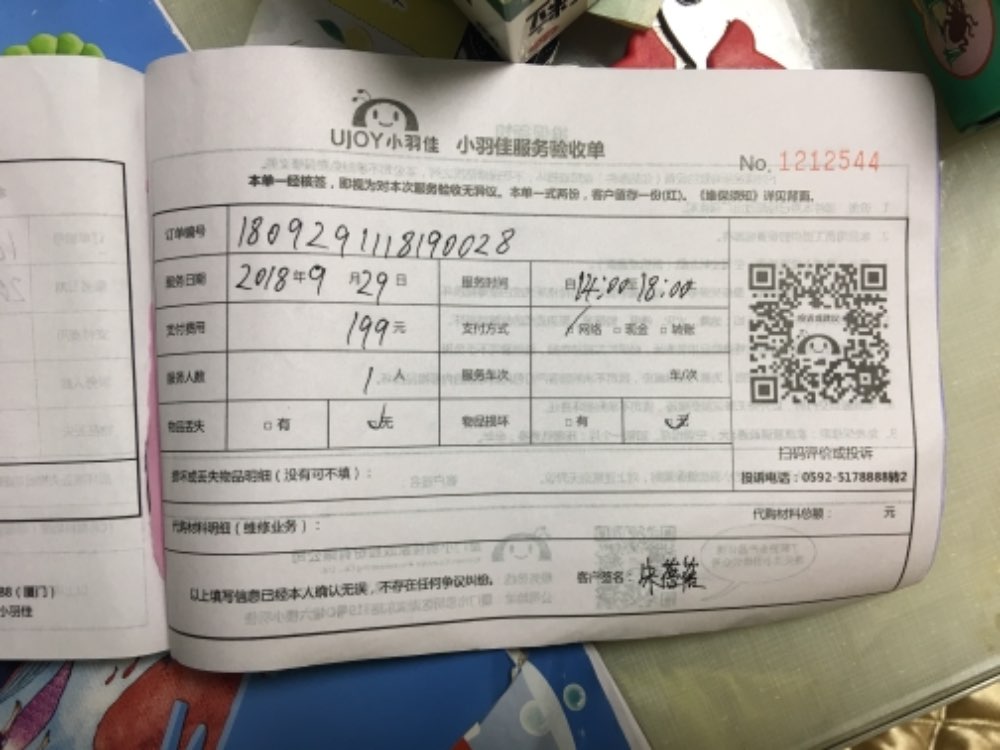 UJOY小羽佳 小羽佳服务验收单
No. 1212544
本单一经核签，即视为对本次服务验收无异议。本单一式两份，客户留存一份(红)。《维保须知》详见背面。
订单编号 1809291118190028
服务日期 2018年9月29日 服务时间 自14:00至18:00
支付费用 199元 支付方式 ✓网络 □现金 □转账
服务人数 1人 服务车次 车/次
物品丢失 □有 ✓无 物品损坏 □有 ✓无
扫码评价或投诉
投诉电话：0592-5178888转2
损坏或丢失物品明细（没有可不填）：
代购材料明细（维修业务）： 代购材料总额： 元
以上填写信息已经本人确认无误，不存在任何争议纠纷。 客户签名：
88（厦门）
小羽佳